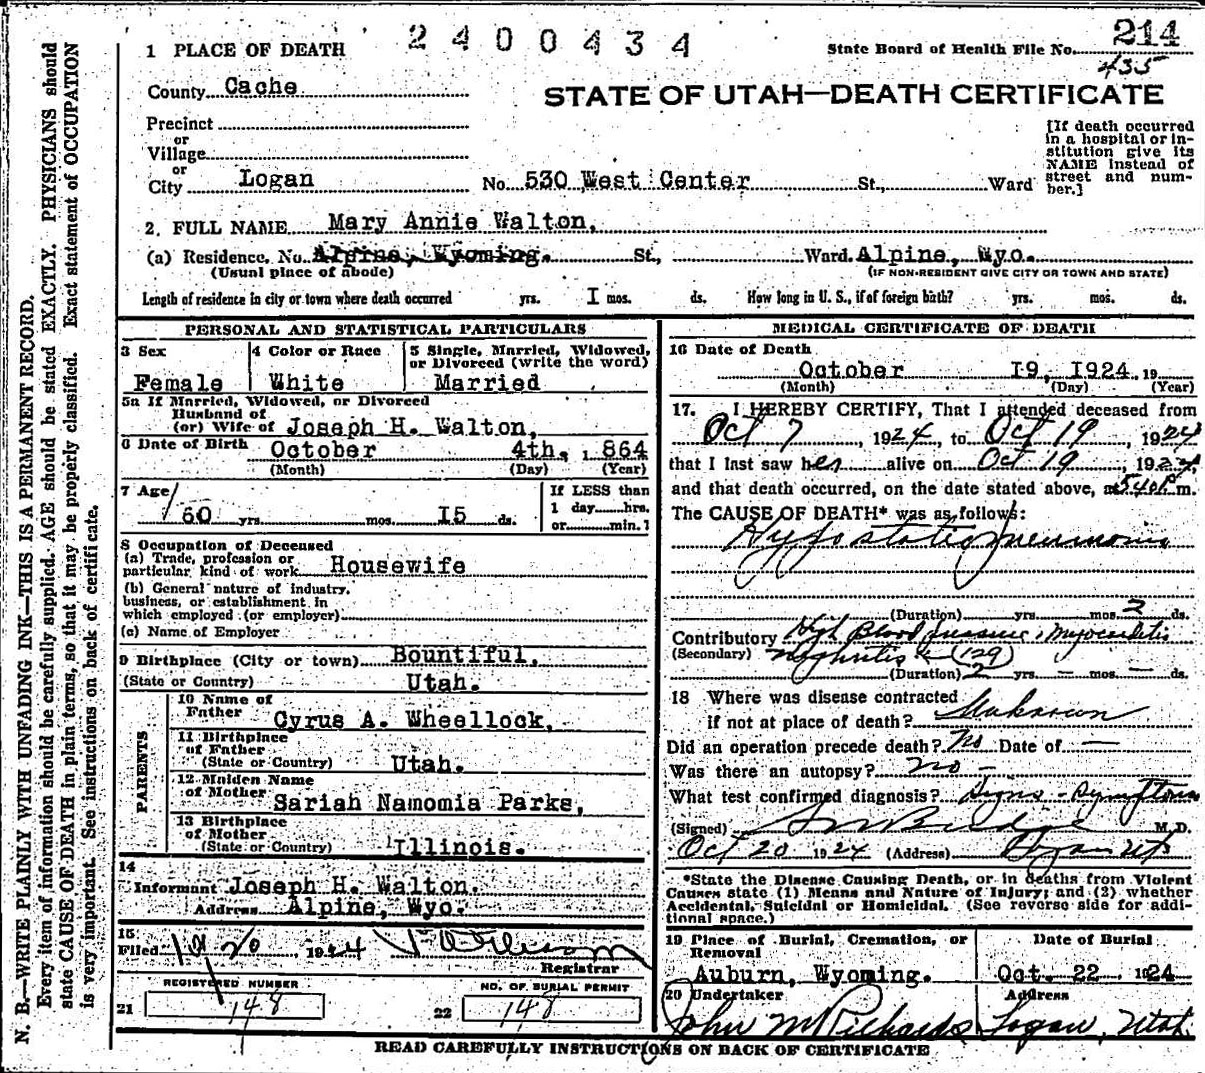 2400434
State Board of Health File No. 214
435
1 PLACE OF DEATH
County Cache
STATE OF UTAH—DEATH CERTIFICATE
Precinct
or
Village
or
City Logan No. 530 West Center St., Ward
[If death occurred
in a hospital or in-
stitution give its
NAME instead of
street and num-
ber.]
2. FULL NAME Mary Annie Walton,
(a) Residence. No. Alpine, Wyoming. St., Ward. Alpine, Wyo.
(Usual place of abode) (IF NON-RESIDENT GIVE CITY OR TOWN AND STATE)
Length of residence in city or town where death occurred yrs. I mos. ds. How long in U. S., if of foreign birth? yrs. mos. ds.
PERSONAL AND STATISTICAL PARTICULARS
3 Sex
Female
4 Color or Race
White
5 Single, Married, Widowed,
or Divorced (write the word)
Married
5a If Married, Widowed, or Divorced
Husband of
(or) Wife of Joseph H. Walton,
6 Date of Birth October 4th, , 864
(Month) (Day) (Year)
7 Age
60 yrs. mos. I5 ds.
If LESS than
1 day hrs.
or min.]
8 Occupation of Deceased
(a) Trade, profession or
particular kind of work Housewife
(b) General nature of industry,
business, or establishment in
which employed (or employer)
(c) Name of Employer
9 Birthplace (City or town) Bountiful,
(State or Country) Utah.
PARENTS
10 Name of
Father Cyrus A. Wheellock,
11 Birthplace
of Father
(State or Country) Utah.
12 Maiden Name
of Mother Sariah Namomia Parks,
13 Birthplace
of Mother
(State or Country) Illinois.
14
Informant Joseph H. Walton.
Address Alpine, Wyo.
15
Filed 10 20 1924
Registrar
REGISTERED NUMBER
21 148
NO. OF BURIAL PERMIT
22 148
MEDICAL CERTIFICATE OF DEATH
16 Date of Death
October I9, I924, 19
(Month) (Day) (Year)
17. I HEREBY CERTIFY, That I attended deceased from
Oct 7, 1924, to Oct 19, 1924
that I last saw her alive on Oct 19, 1924,
and that death occurred, on the date stated above, at 540P m.
The CAUSE OF DEATH* was as follows:
Hypostatic pneumonia
(Duration) yrs. mos. 2 ds.
Contributory High Blood pressure, Myocarditis
(Secondary) Nephritis (129)
(Duration) 2 yrs. — mos. — ds.
18 Where was disease contracted
if not at place of death? Unknown
Did an operation precede death? No Date of —
Was there an autopsy? no –
What test confirmed diagnosis? Signs - Symptoms
(Signed) M.D.
Oct 20 1924 (Address) Logan Ut.
*State the Disease Causing Death, or in deaths from Violent
Causes state (1) Means and Nature of Injury; and (2) whether
Accidental, Suicidal or Homicidal. (See reverse side for addi-
tional space.)
19 Place of Burial, Cremation, or
Removal
Auburn, Wyoming.
Date of Burial
Oct. 22, 1924
20 Undertaker
John M Richards
Address
Logan, Utah.
READ CAREFULLY INSTRUCTIONS ON BACK OF CERTIFICATE
N. B.—WRITE PLAINLY WITH UNFADING INK—THIS IS A PERMANENT RECORD.
Every item of information should be carefully supplied. AGE should be stated EXACTLY. PHYSICIANS should
state CAUSE OF DEATH in plain terms, so that it may be properly classified. Exact statement of OCCUPATION
is very important. See instructions on back of certificate.